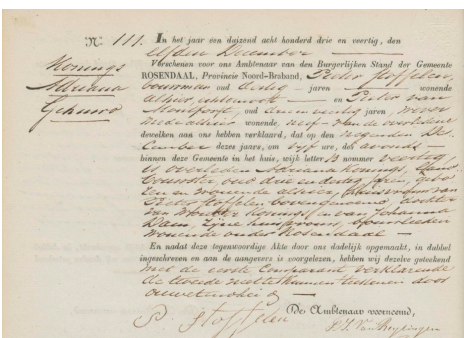 N.º 111.
Konings
Adriana
Gehuwd
In het jaar een duizend acht honderd drie en veertig, den
elfden December
Verschenen voor ons Ambtenaar van den Burgerlijken Stand der Gemeente
ROSENDAAL, Provincie Noord-Braband, Pieter Stoffelen,
bouwman oud dertig jaren wonende
alhier, en Pieter van
oud jaren,
mede alhier wonende, neef van de overledene
dewelken aan ons hebben verklaard, dat op den negenden De-
cember dezes jaars, om vijf ure, des avonds
binnen deze Gemeente in het huis, wijk letter B nommer veertig
is overleden Adriana Konings,
oud drie en dertig jaren, geboren
en wonende alhier, huisvrouw van
Pieter Stoffelen bovengenoemd, dochter
van Wouter Konings en van Johanna
Dam, zijne huisvrouw,
wonende onder Rosendaal
En nadat deze tegenwoordige Akte door ons dadelijk opgemaakt, in dubbel
ingeschreven en aan de aangevers is voorgelezen, hebben wij dezelve geteekend
met de eerste Comparant verklarende
de tweede niet te kunnen teekenen door
onwetendheid
De Ambtenaar voornoemd,
P. Stoffelen